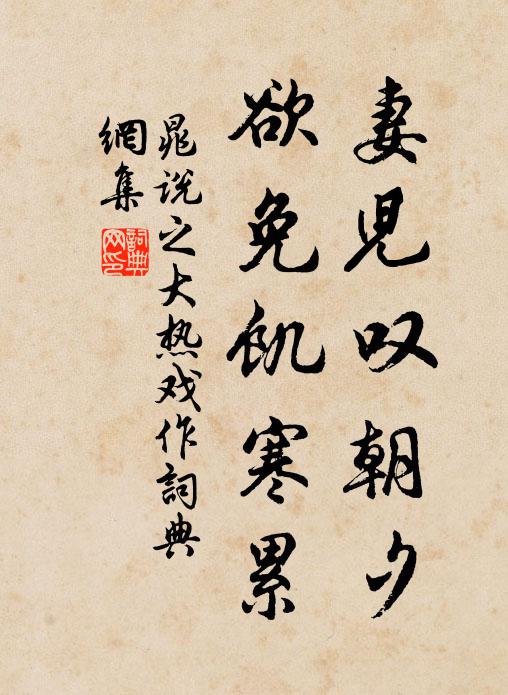 妻児叹朝夕
欲免飢寒累
晁说之大热戏作詞典
網集
詞典
网印